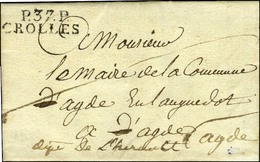 P.37.P.
CROLLES
Monsieur
le maire de la Commune
d'agde En Languedoc
a d'agde
agde
dep de Lherault